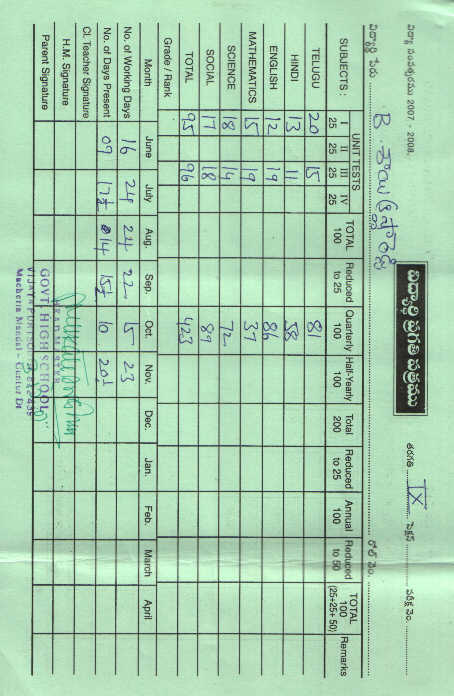 విద్యా సంవత్సరము 2007 - 2008. విద్యార్థి ప్రగతి పత్రము తరగతి IX సెక్షన్
విద్యార్థి పేరు B. రోల్ నెం.
SUBJECTS : UNIT TESTS I 25 II 25 III 25 IV 25 TOTAL 100 Reduced to 25 Quarterly 100 Half-Yearly 100 Total 200 Reduced to 25 Annual 100 Reduced to 50 TOTAL 100 (25+25+ 50) Remarks
TELUGU 20 15 81
HINDI 13 11 58
ENGLISH 12 19 86
MATHEMATICS 15 19 37
SCIENCE 18 14 72
SOCIAL 17 18 89
TOTAL 95 96 423
Grade / Rank
Month June July Aug. Sep. Oct. Nov. Dec. Jan. Feb. March April
No. of Working Days 16 24 24 22 15 23
No. of Days Present 09 17½ 14 15½ 10 20½
Cl. Teacher Signature
H.M. Signature HEAD MASTER
Parent Signature GOVT. HIGH SCHOOL
Macherla Mandal - Guntur Dt